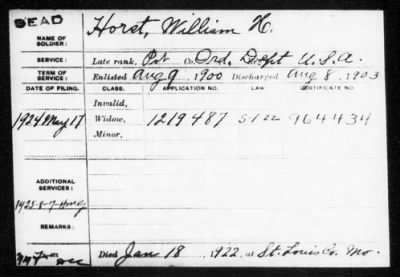 DEAD
NAME OF SOLDIER: Horst, William H.
SERVICE: Late rank, Pvt Co. Ord. Dept U.S.A.
TERM OF SERVICE: Enlisted Aug 9, 1900 Discharged Aug 8, 1903
DATE OF FILING. CLASS. APPLICATION NO. LAW. CERTIFICATE NO.
Invalid,
1924 May 17 Widow, 1219487 964434
Minor,
ADDITIONAL SERVICES:
1925-8-7
REMARKS:
Died Jan 18, 1922, at St. Louis Co. Mo.